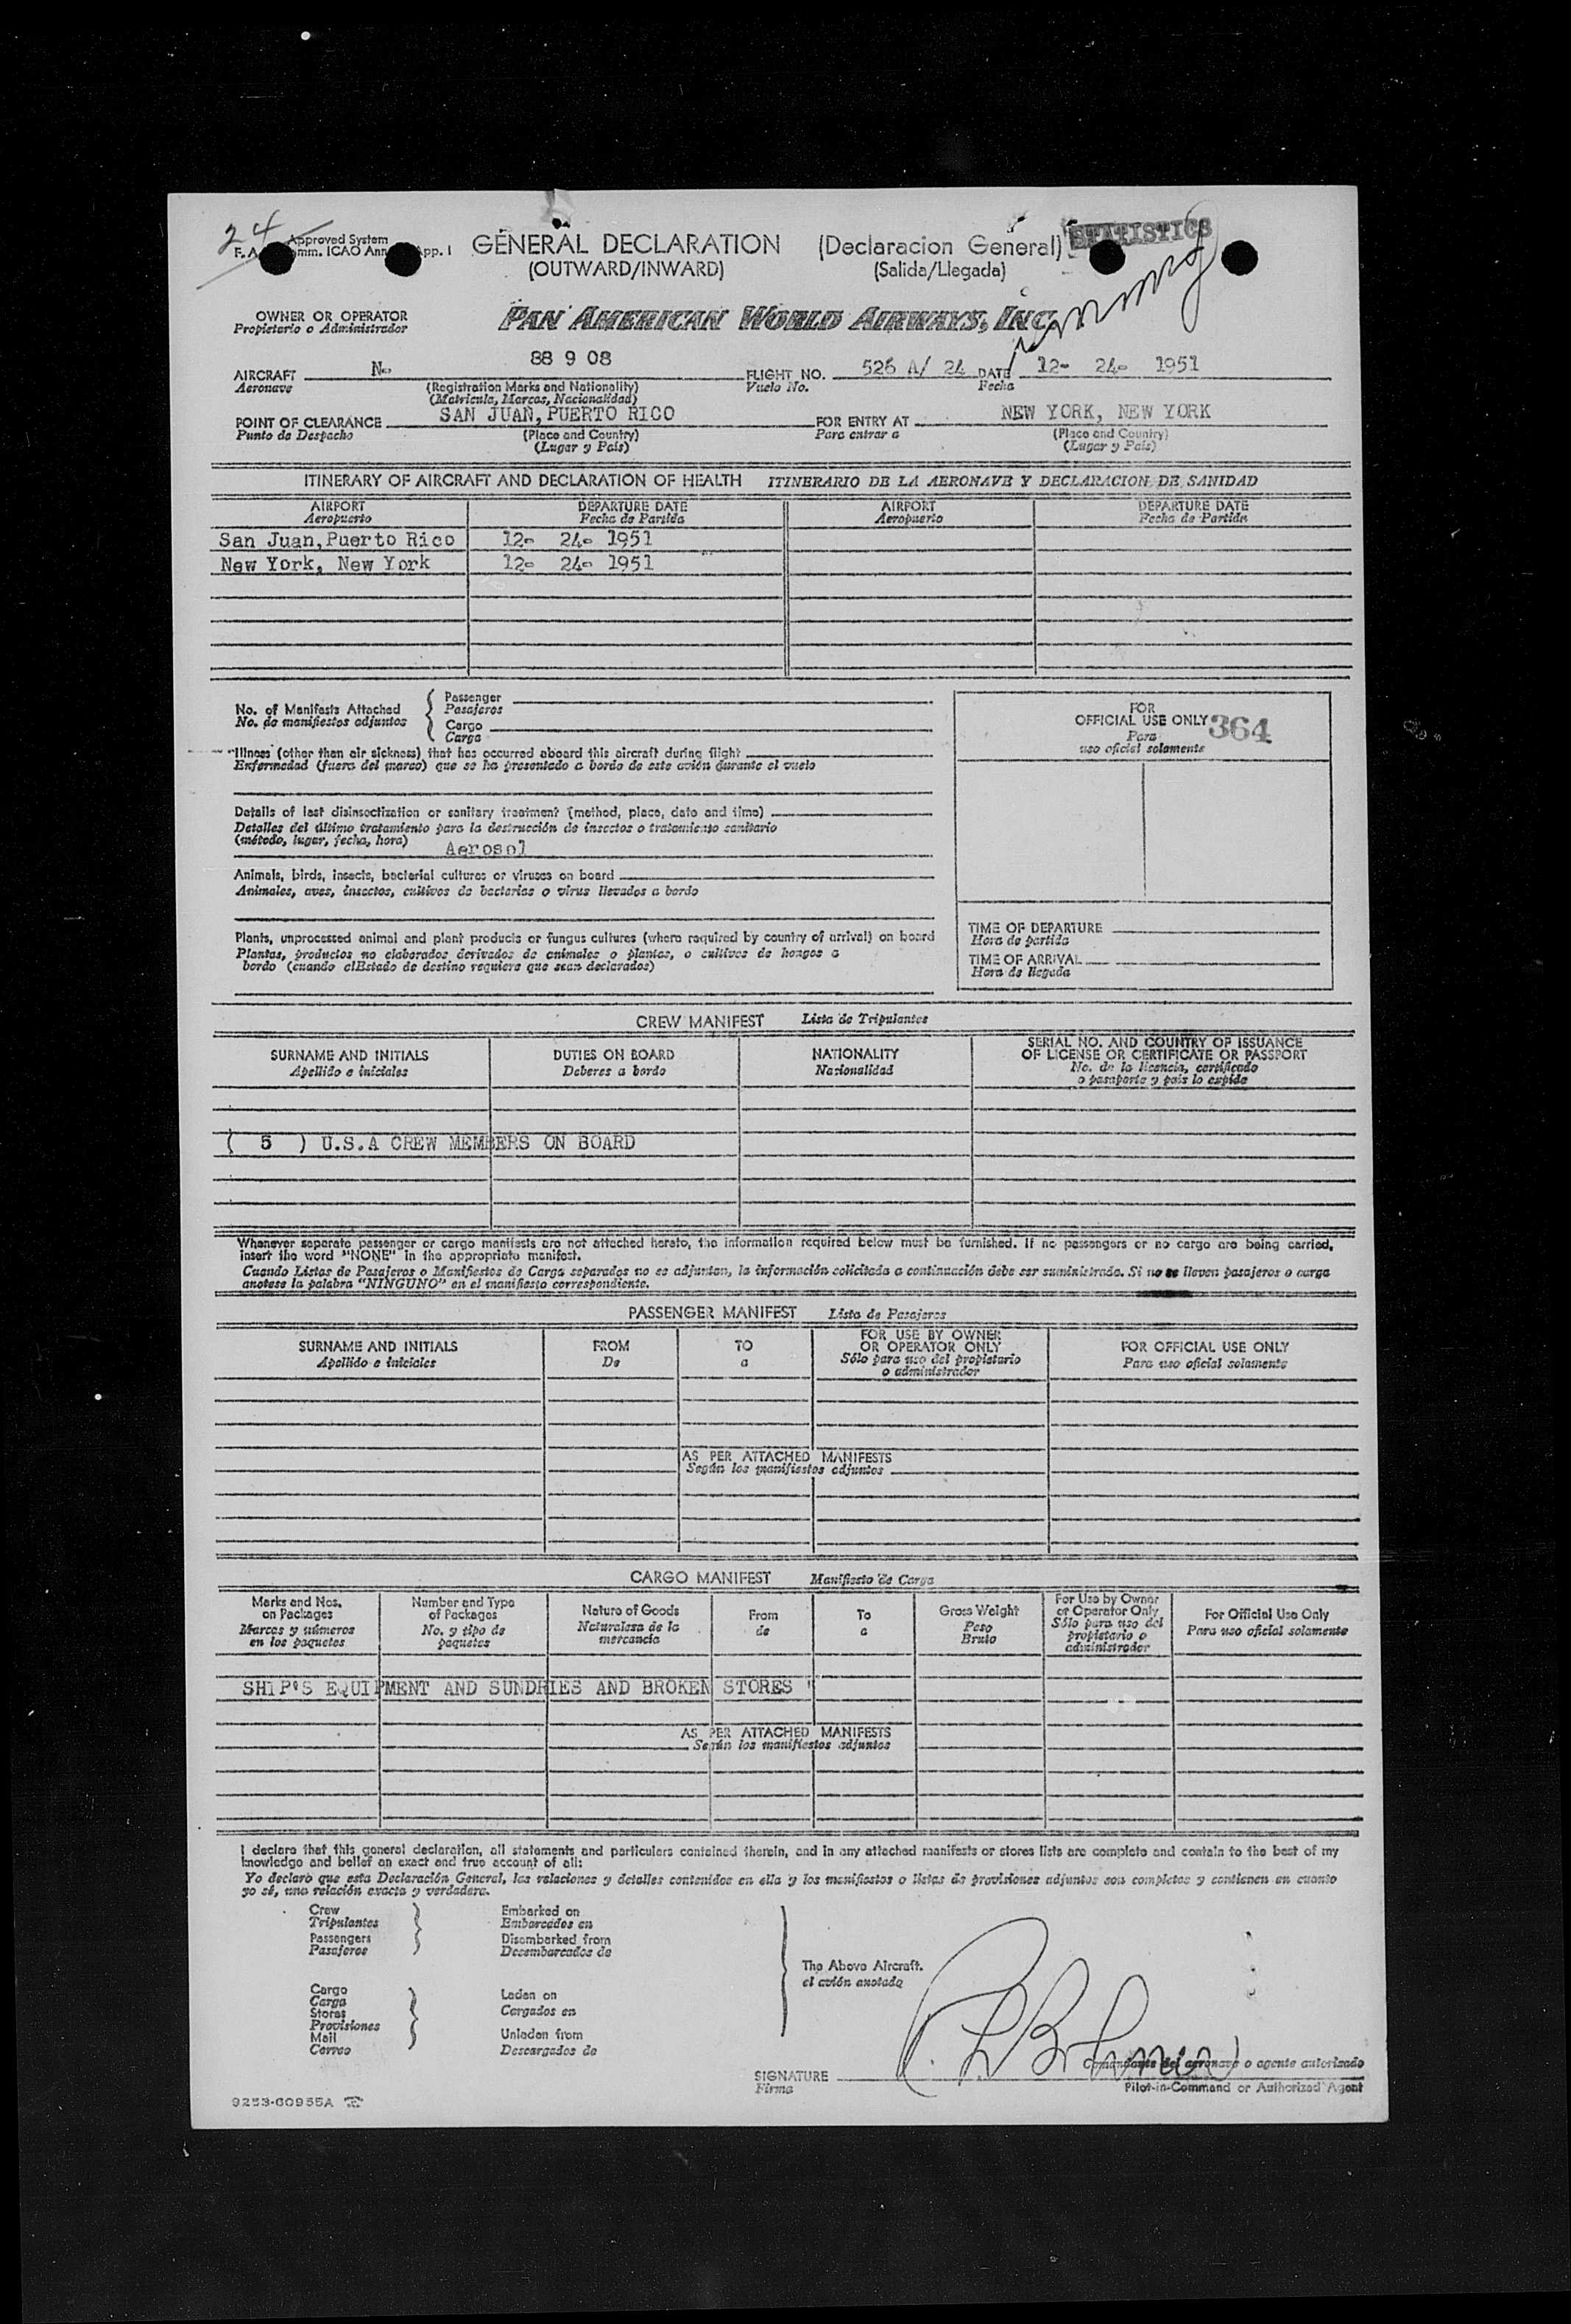 24
Approved System
GENERAL DECLARATION (Declaracion General) STATISTICS
F. A. mm. ICAO Ann App. I
(OUTWARD/INWARD) (Salida/Llegada)
OWNER OR OPERATOR PAN AMERICAN WORLD AIRWAYS, INC.
Propietario o Administrador
AIRCRAFT No 88 9 08 FLIGHT NO. 526 A/ 24 DATE 12- 24- 1951
Aeronave (Registration Marks and Nationality) Vuelo No. Fecha
(Matricula, Marcas, Nacionalidad)
POINT OF CLEARANCE SAN JUAN, PUERTO RICO FOR ENTRY AT NEW YORK, NEW YORK
Punto de Despacho (Place and Country) Para entrar a (Place and Country)
(Lugar y País) (Lugar y País)
ITINERARY OF AIRCRAFT AND DECLARATION OF HEALTH ITINERARIO DE LA AERONAVE Y DECLARACION DE SANIDAD
AIRPORT DEPARTURE DATE AIRPORT DEPARTURE DATE
Aeropuerto Fecha de Partida Aeropuerto Fecha de Partida
San Juan, Puerto Rico 12- 24- 1951
New York, New York 12- 24- 1951
No. of Manifests Attached Passenger
No. de manifiestos adjuntos Pasajeros
Cargo
Carga
FOR
OFFICIAL USE ONLY 364
Para
uso oficial solamente
Illness (other than air sickness) that has occurred aboard this aircraft during flight
Enfermedad (fuera del mareo) que se ha presentado a bordo de este avión durante el vuelo
Details of last disinsectization or sanitary treatment (method, place, date and time)
Detalles del último tratamiento para la destrucción de insectos o tratamiento sanitario
(método, lugar, fecha, hora) Aerosol
Animals, birds, insects, bacterial cultures or viruses on board
Animales, aves, insectos, cultivos de bacterias o virus llevados a bordo
Plants, unprocessed animal and plant products or fungus cultures (where required by country of arrival) on board
Plantas, productos no elaborados derivados de animales o plantas, o cultivos de hongos a
bordo (cuando elEstado de destino requiere que sean declarados)
TIME OF DEPARTURE
Hora de partida
TIME OF ARRIVAL
Hora de llegada
CREW MANIFEST Lista de Tripulantes
SURNAME AND INITIALS DUTIES ON BOARD NATIONALITY SERIAL NO. AND COUNTRY OF ISSUANCE
OF LICENSE OR CERTIFICATE OR PASSPORT
Apellido e iniciales Deberes a bordo Nacionalidad No. de la licencia, certificado
o pasaporte y país lo expide
( 5 ) U.S.A CREW MEMBERS ON BOARD
Whenever separate passenger or cargo manifests are not attached hereto, the information required below must be furnished. If no passengers or no cargo are being carried,
insert the word "NONE" in the appropriate manifest.
Cuando Listas de Pasajeros o Manifiestos de Carga separados no se adjuntan, la información solicitada a continuación debe ser suministrada. Si no se lleven pasajeros o carga
anotese la palabra "NINGUNO" en el manifiesto correspondiente.
PASSENGER MANIFEST Lista de Pasajeros
SURNAME AND INITIALS FROM TO FOR USE BY OWNER OR OPERATOR ONLY FOR OFFICIAL USE ONLY
Apellido e iniciales De a Sólo para uso del propietario o administrador Para uso oficial solamente
AS PER ATTACHED MANIFESTS
Según los manifiestos adjuntos
CARGO MANIFEST Manifiesto de Carga
Marks and Nos. on Packages Number and Type of Packages Nature of Goods From To Gross Weight For Use by Owner or Operator Only For Official Use Only
Marcas y números en los paquetes No. y tipo de paquetes Naturaleza de la mercancía de a Peso Bruto Sólo para uso del propietario o administrador Para uso oficial solamente
SHIP'S EQUIPMENT AND SUNDRIES AND BROKEN STORES "
AS PER ATTACHED MANIFESTS
Según los manifiestos adjuntos
I declare that this general declaration, all statements and particulars contained therein, and in any attached manifests or stores lists are complete and contain to the best of my
knowledge and belief an exact and true account of all:
Yo declaro que esta Declaración General, las relaciones y detalles contenidos en ella y los manifiestos o listas de provisiones adjuntos son completos y contienen en cuanto
yo sé, una relación exacta y verdadera.
Crew Embarked on
Tripulantes Embarcados en
Passengers Disembarked from
Pasajeros Desembarcados de
The Above Aircraft.
el avión anotado
Cargo Laden on
Carga Cargados en
Stores
Provisiones
Mail Unladen from
Correo Descargados de
SIGNATURE Comandante del aeronave o agente autorizado
Firma Pilot-in-Command or Authorized Agent
9253-60955A